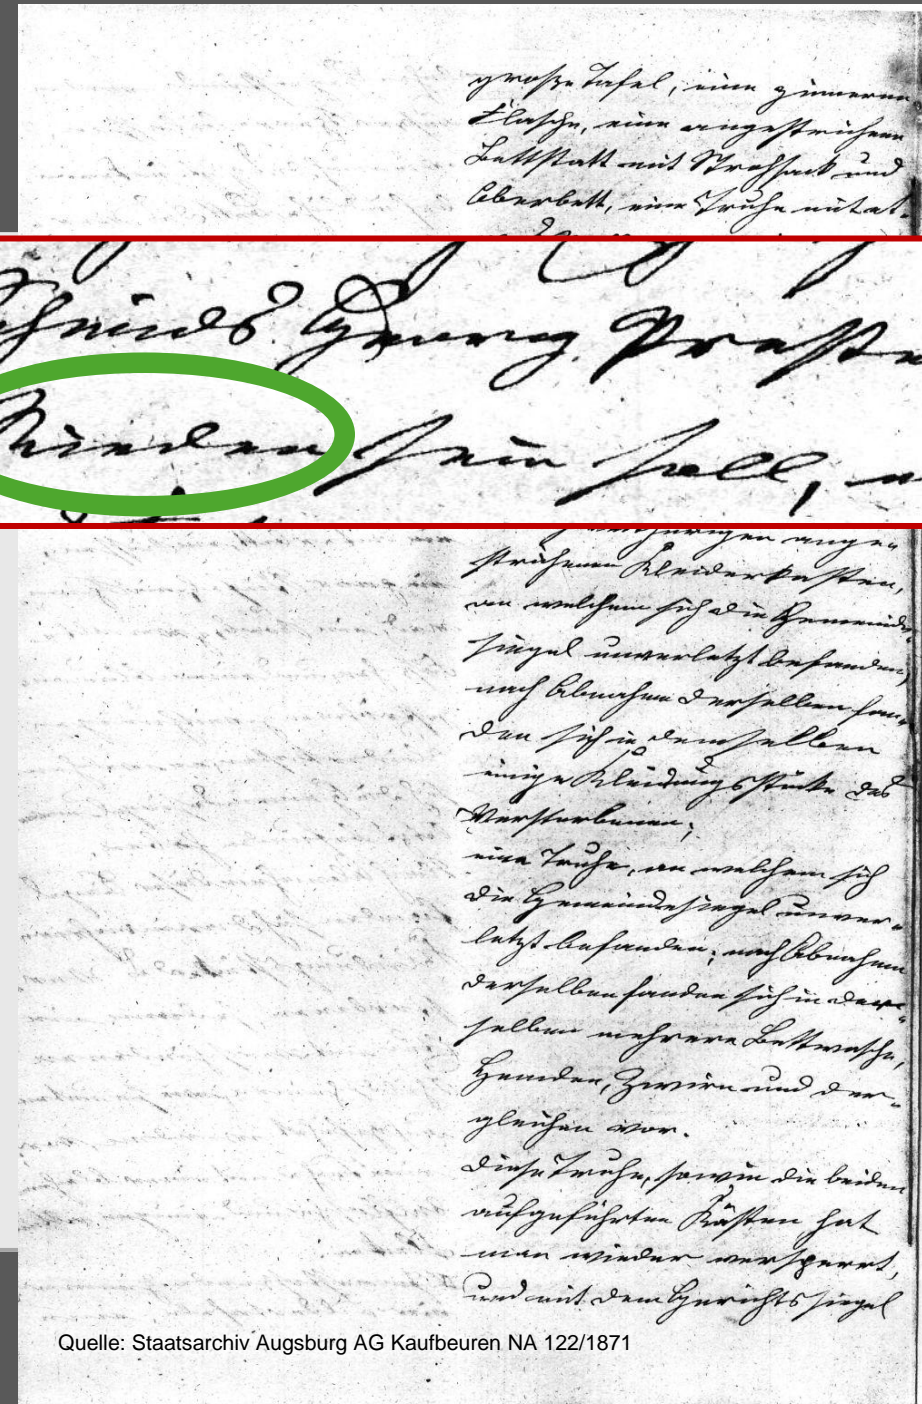 große Tafel, eine zinnerne
Flasche, eine angestrichene
Bettstatt mit Strohsack und
Oberbett, eine Truhe mit et-
Georg
Rieden sein soll,
ange-
strichenen Kleiderkasten,
an welchem sich die Gemeinde-
siegel unverletzt befanden,
nach Abnahme derselben fan-
den sich in demselben
einige Kleidungsstücke des
Verstorbenen;
eine Truhe, an welchem sich
die Gemeindesiegel unver-
letzt befanden; nach Abnahme
derselben fanden sich in der-
selben mehrere Bettwäsche,
Hemden, Zwirn und der-
gleichen vor.
Diese Truhe, sowie die beiden
aufgeführten Kästen hat
man wieder versperrt,
und mit dem Gerichtssiegel
Quelle: Staatsarchiv Augsburg AG Kaufbeuren NA 122/1871